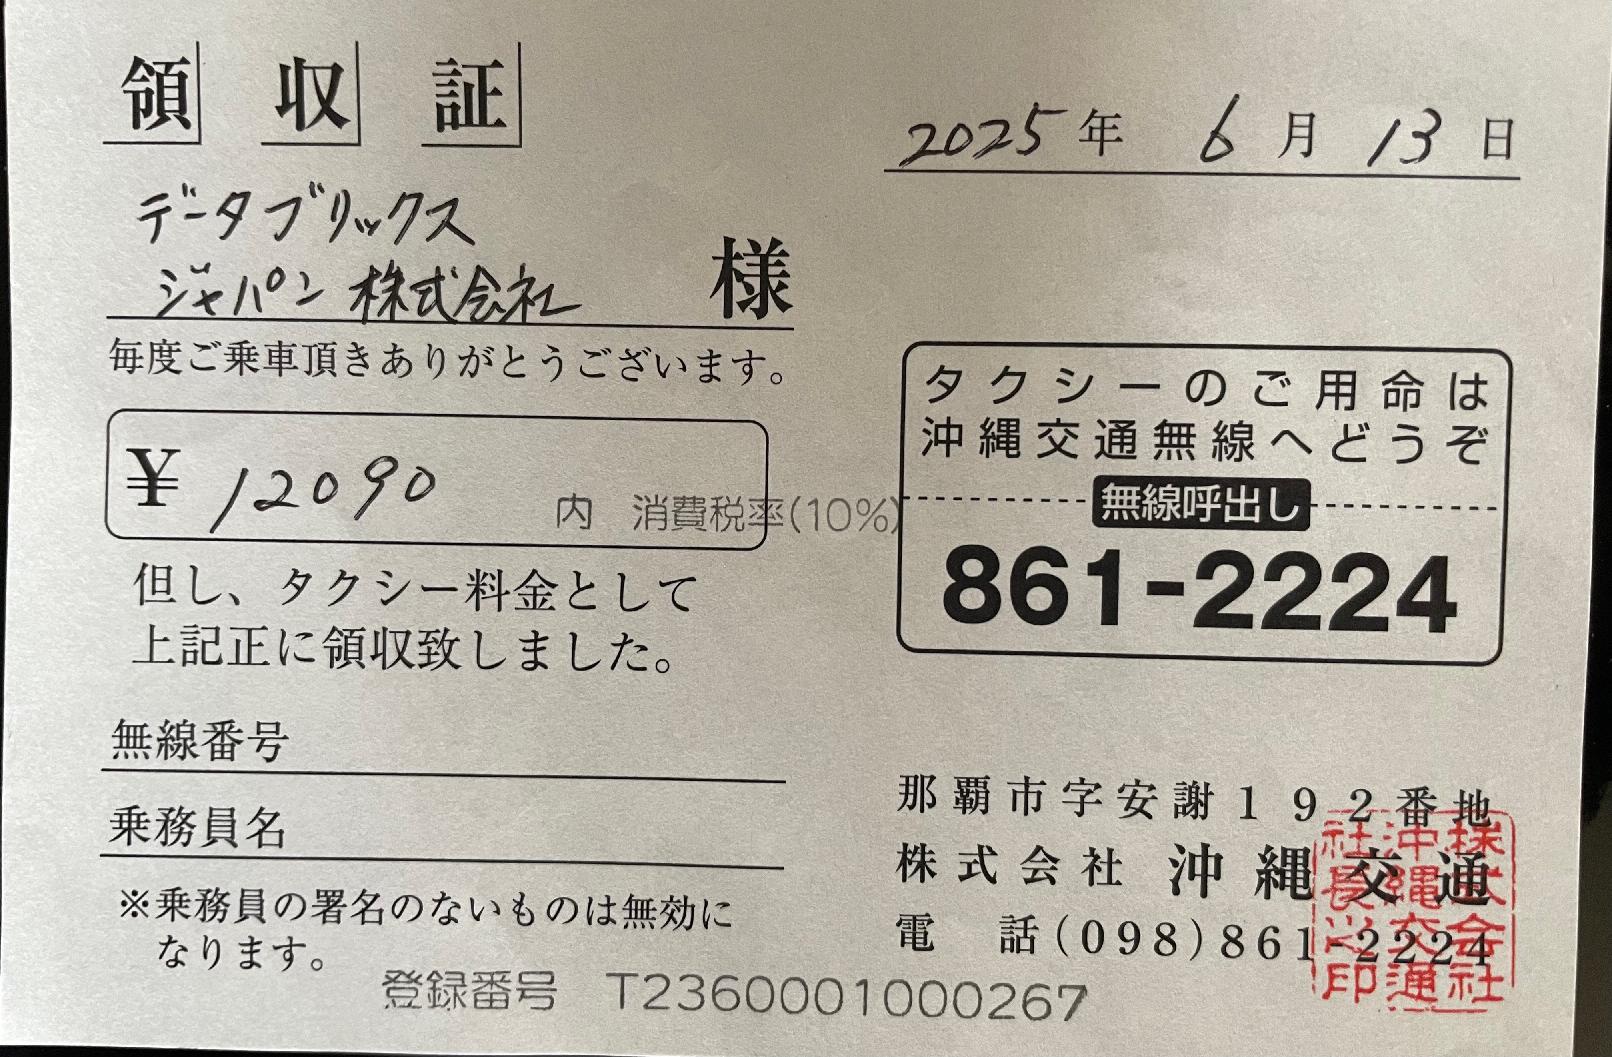 領収証
2025年 6月 13日
データブリックス
ジャパン 株式会社 様
毎度ご乗車頂きありがとうございます。
¥ 12090
内 消費税率(10%)
但し、タクシー料金として
上記正に領収致しました。
無線番号
乗務員名
※乗務員の署名のないものは無効に
なります。
登録番号 T2360001000267
タクシーのご用命は
沖縄交通無線へどうぞ
無線呼出し
861-2224
那覇市字安謝192番地
株式会社 沖縄交通
電 話(098)861-2224
株式会社
沖縄交通
社長之印